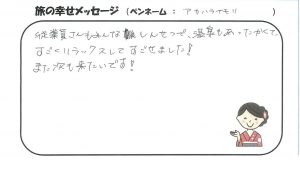 旅の幸せメッセージ (ペンネーム : アカハライモリ )
従業員さんもみんなしんせつで、温泉もあったかくて
すごくリラックスしてすごせました!
また次も来たいです!